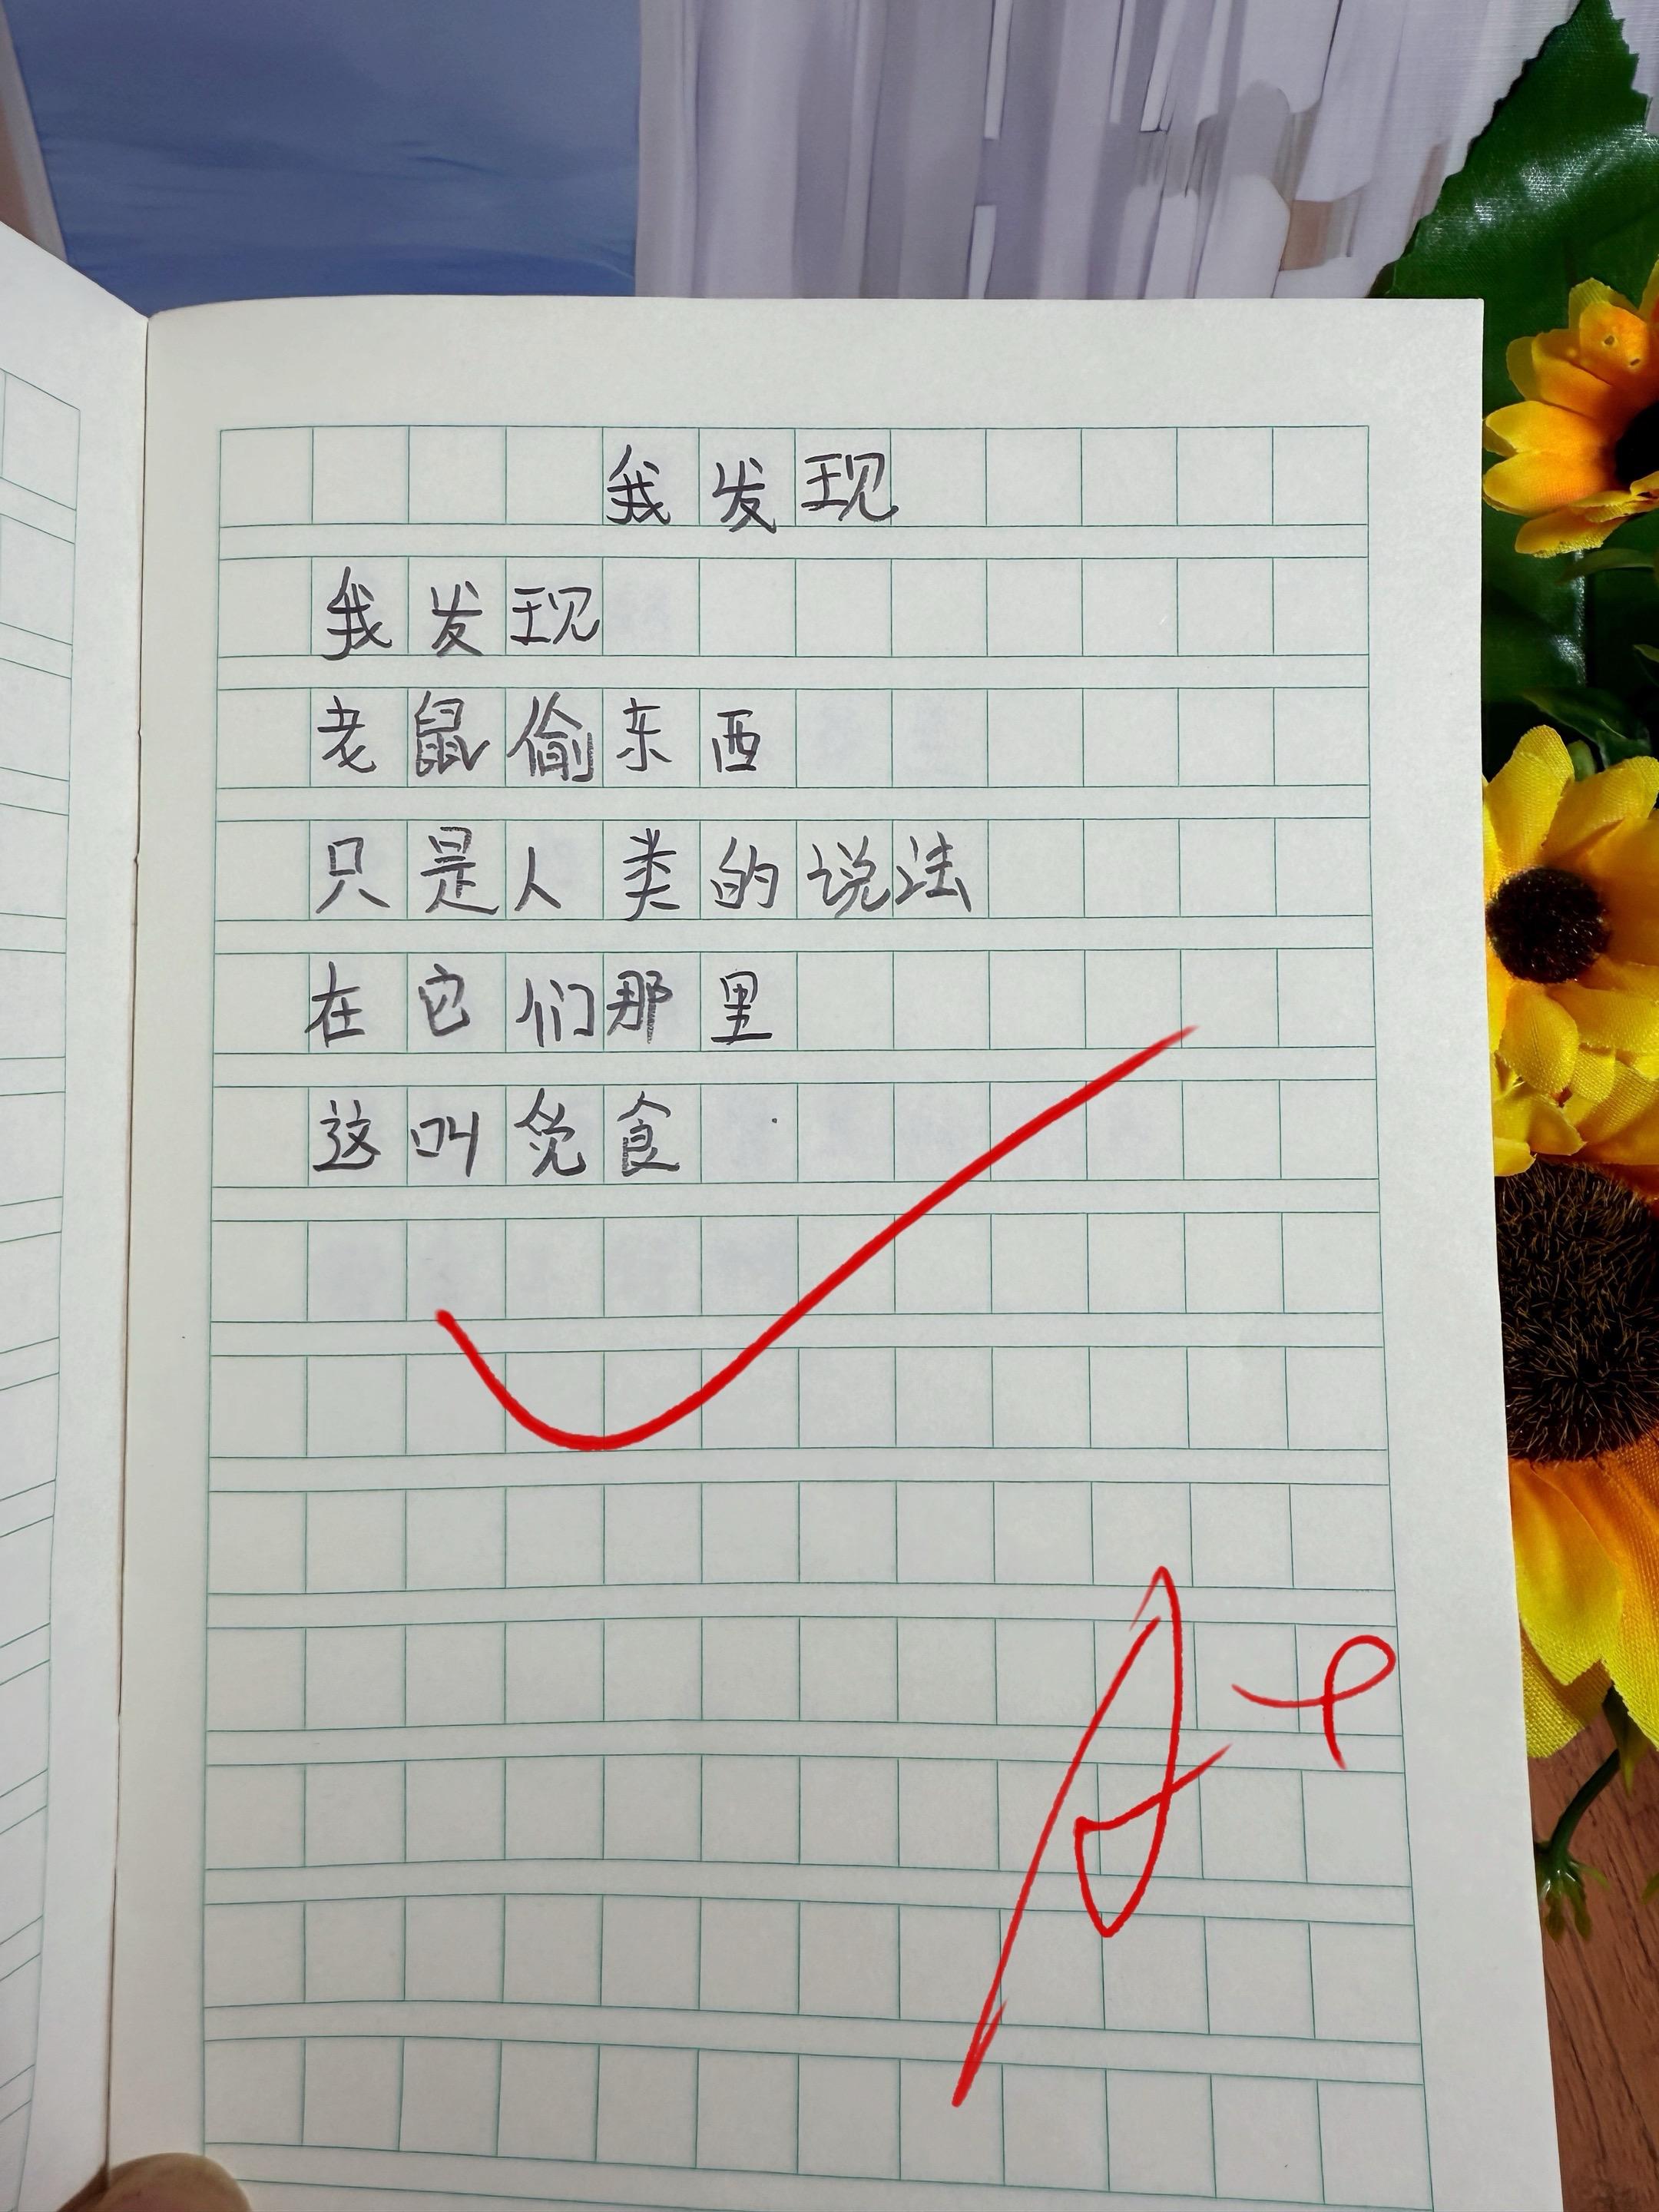 我发现
我发现
老鼠偷东西
只是人类的说法
在它们那里
这叫觅食
A+